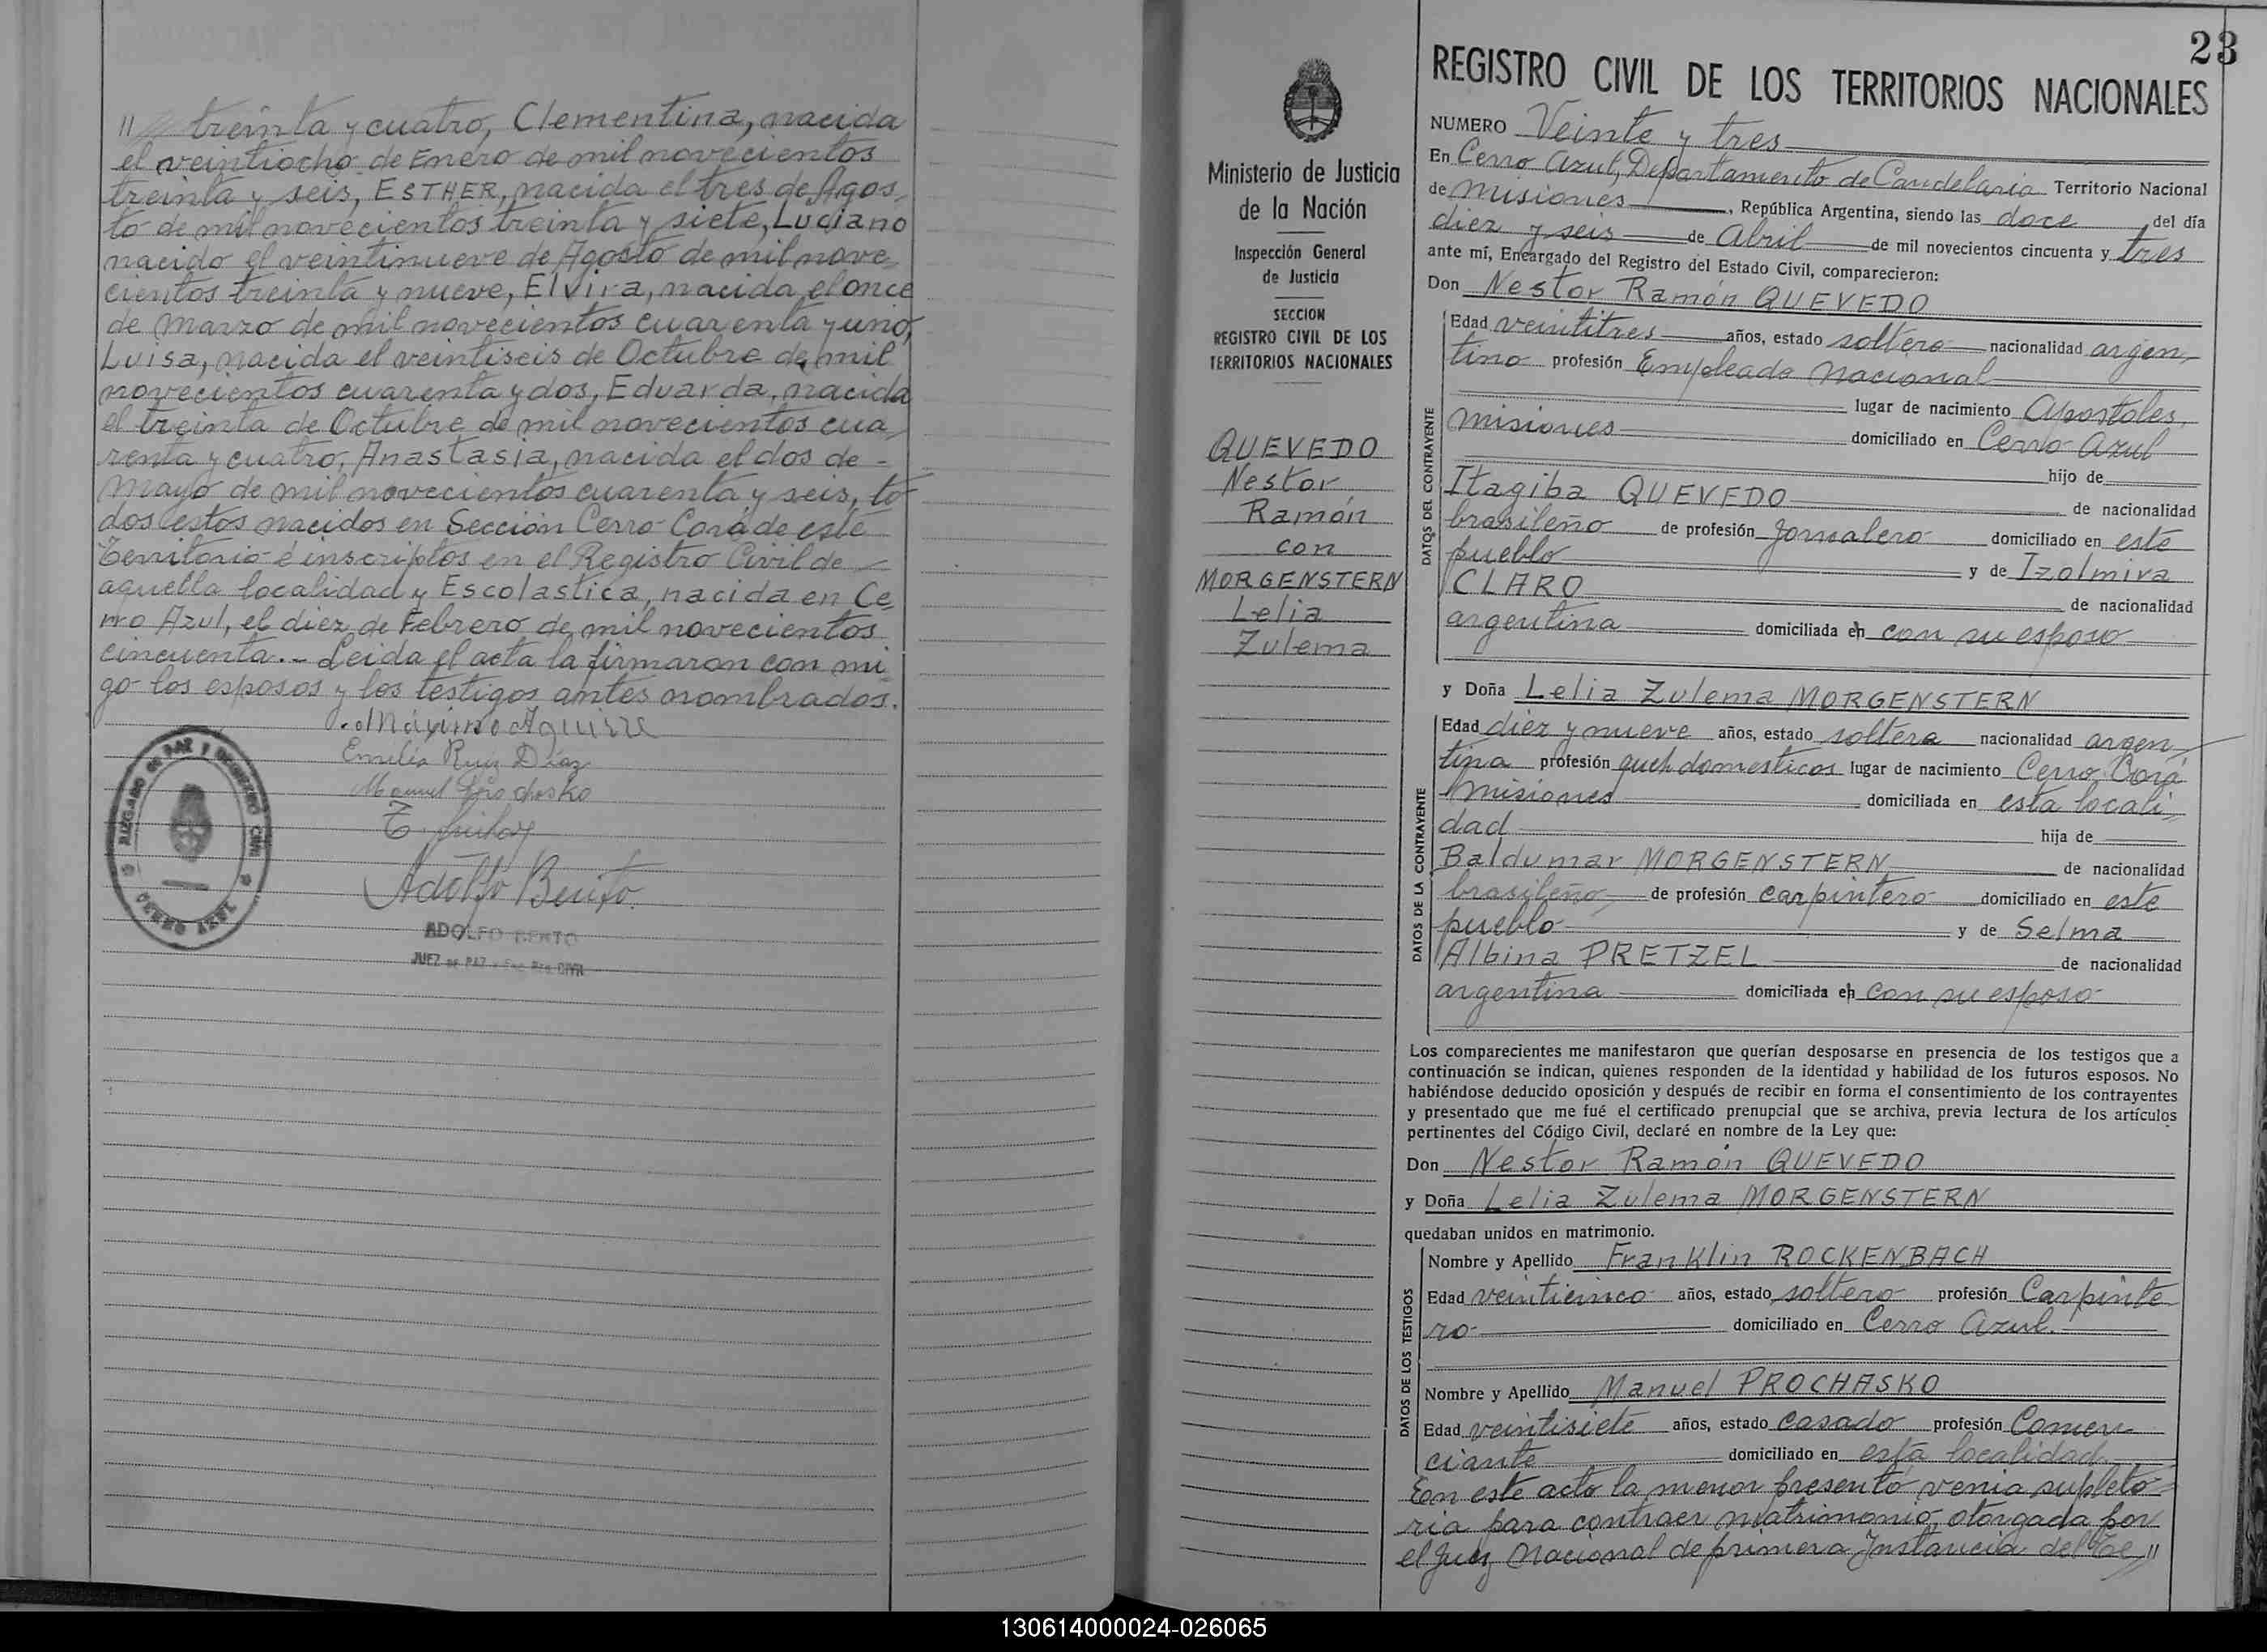 " treinta y cuatro, Clementina, nacida
el veintiocho de Enero de mil novecientos
treinta y seis, ESTHER, nacida el tres de Agos-
to de mil novecientos treinta y siete, Luciano
nacido el veintinueve de Agosto de mil nove-
cientos treinta y nueve, Elvira, nacida el once
de Marzo de mil novecientos cuarenta y uno,
Luisa, nacida el veintiseis de Octubre de mil
novecientos cuarenta y dos, Eduarda, nacida
el treinta de Octubre de mil novecientos cua-
renta y cuatro, Anastasia, nacida el dos de -
Mayo de mil novecientos cuarenta y seis, to-
dos estos nacidos en Sección Cerro-Corá de este
Territorio é inscriptos en el Registro Civil de
aquella localidad y Escolastica, nacida en Ce-
rro Azul, el diez de Febrero de mil novecientos
cincuenta.- Leida el acta la firmaron con mi-
go los esposos y los testigos antes nombrados.
Máximo Aguirre
Emilia Ruiz Diaz
Manuel Prochasko
Adolfo Benito
JUZGADO DE PAZ Y REGISTRO CIVIL
CERRO AZUL
ADOLFO BENITO
JUEZ DE PAZ y Enc. Reg. CIVIL
23
Ministerio de Justicia
de la Nación
Inspección General
de Justicia
SECCION
REGISTRO CIVIL DE LOS
TERRITORIOS NACIONALES
QUEVEDO
Nestor
Ramón
con
MORGENSTERN
Lelia
Zulema
REGISTRO CIVIL DE LOS TERRITORIOS NACIONALES
NUMERO Veinte y tres
En Cerro Azul, Departamento de Candelaria Territorio Nacional
de Misiones, República Argentina, siendo las doce del día
diez y seis de Abril de mil novecientos cincuenta y tres
ante mí, Encargado del Registro del Estado Civil, comparecieron:
Don Nestor Ramón QUEVEDO
DATOS DEL CONTRAYENTE
Edad veintitres años, estado soltero nacionalidad argen-
tino profesión Empleado Nacional
lugar de nacimiento Apostoles,
Misiones domiciliado en Cerro Azul
hijo de
Itagiba QUEVEDO de nacionalidad
brasileño de profesión Jornalero domiciliado en este
pueblo y de Izolmira
CLARO de nacionalidad
argentina domiciliada en con su esposo
y Doña Lelia Zulema MORGENSTERN
DATOS DE LA CONTRAYENTE
Edad diez y nueve años, estado soltera nacionalidad argen-
tina profesión queh. domesticos lugar de nacimiento Cerro Corá
Misiones domiciliada en esta locali-
dad hija de
Baldumar MORGENSTERN de nacionalidad
brasileño de profesión carpintero domiciliado en este
pueblo y de Selma
Albina PRETZEL de nacionalidad
argentina domiciliada en con su esposo
Los comparecientes me manifestaron que querían desposarse en presencia de los testigos que a
continuación se indican, quienes responden de la identidad y habilidad de los futuros esposos. No
habiéndose deducido oposición y después de recibir en forma el consentimiento de los contrayentes
y presentado que me fué el certificado prenupcial que se archiva, previa lectura de los artículos
pertinentes del Código Civil, declaré en nombre de la Ley que:
Don Nestor Ramón QUEVEDO
y Doña Lelia Zulema MORGENSTERN
quedaban unidos en matrimonio.
DATOS DE LOS TESTIGOS
Nombre y Apellido Franklin ROCKENBACH
Edad veinticinco años, estado soltero profesión Carpinte-
ro domiciliado en Cerro Azul.
Nombre y Apellido Manuel PROCHASKO
Edad veintisiete años, estado casado profesión Comer-
ciante domiciliado en esta localidad
En este acto la menor presentó venia supleto-
ria para contraer matrimonio, otorgada por
el Juez Nacional de primera Instancia del Te"
130614000024-026065